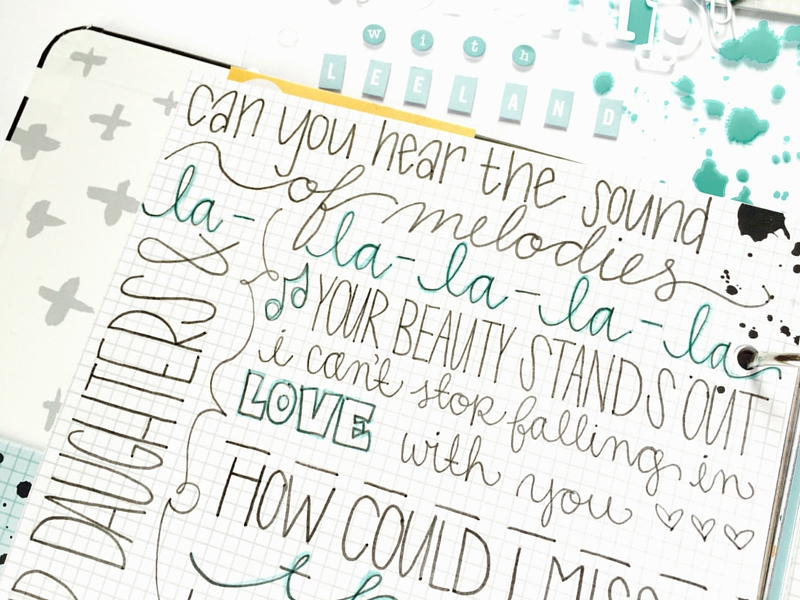 with
LEELAND
can you hear the sound
of melodies
la- la-la-la-la
YOUR BEAUTY STANDS OUT
i can't stop falling in
LOVE with you
HOW COULD I MISS
DAUGHTERS &